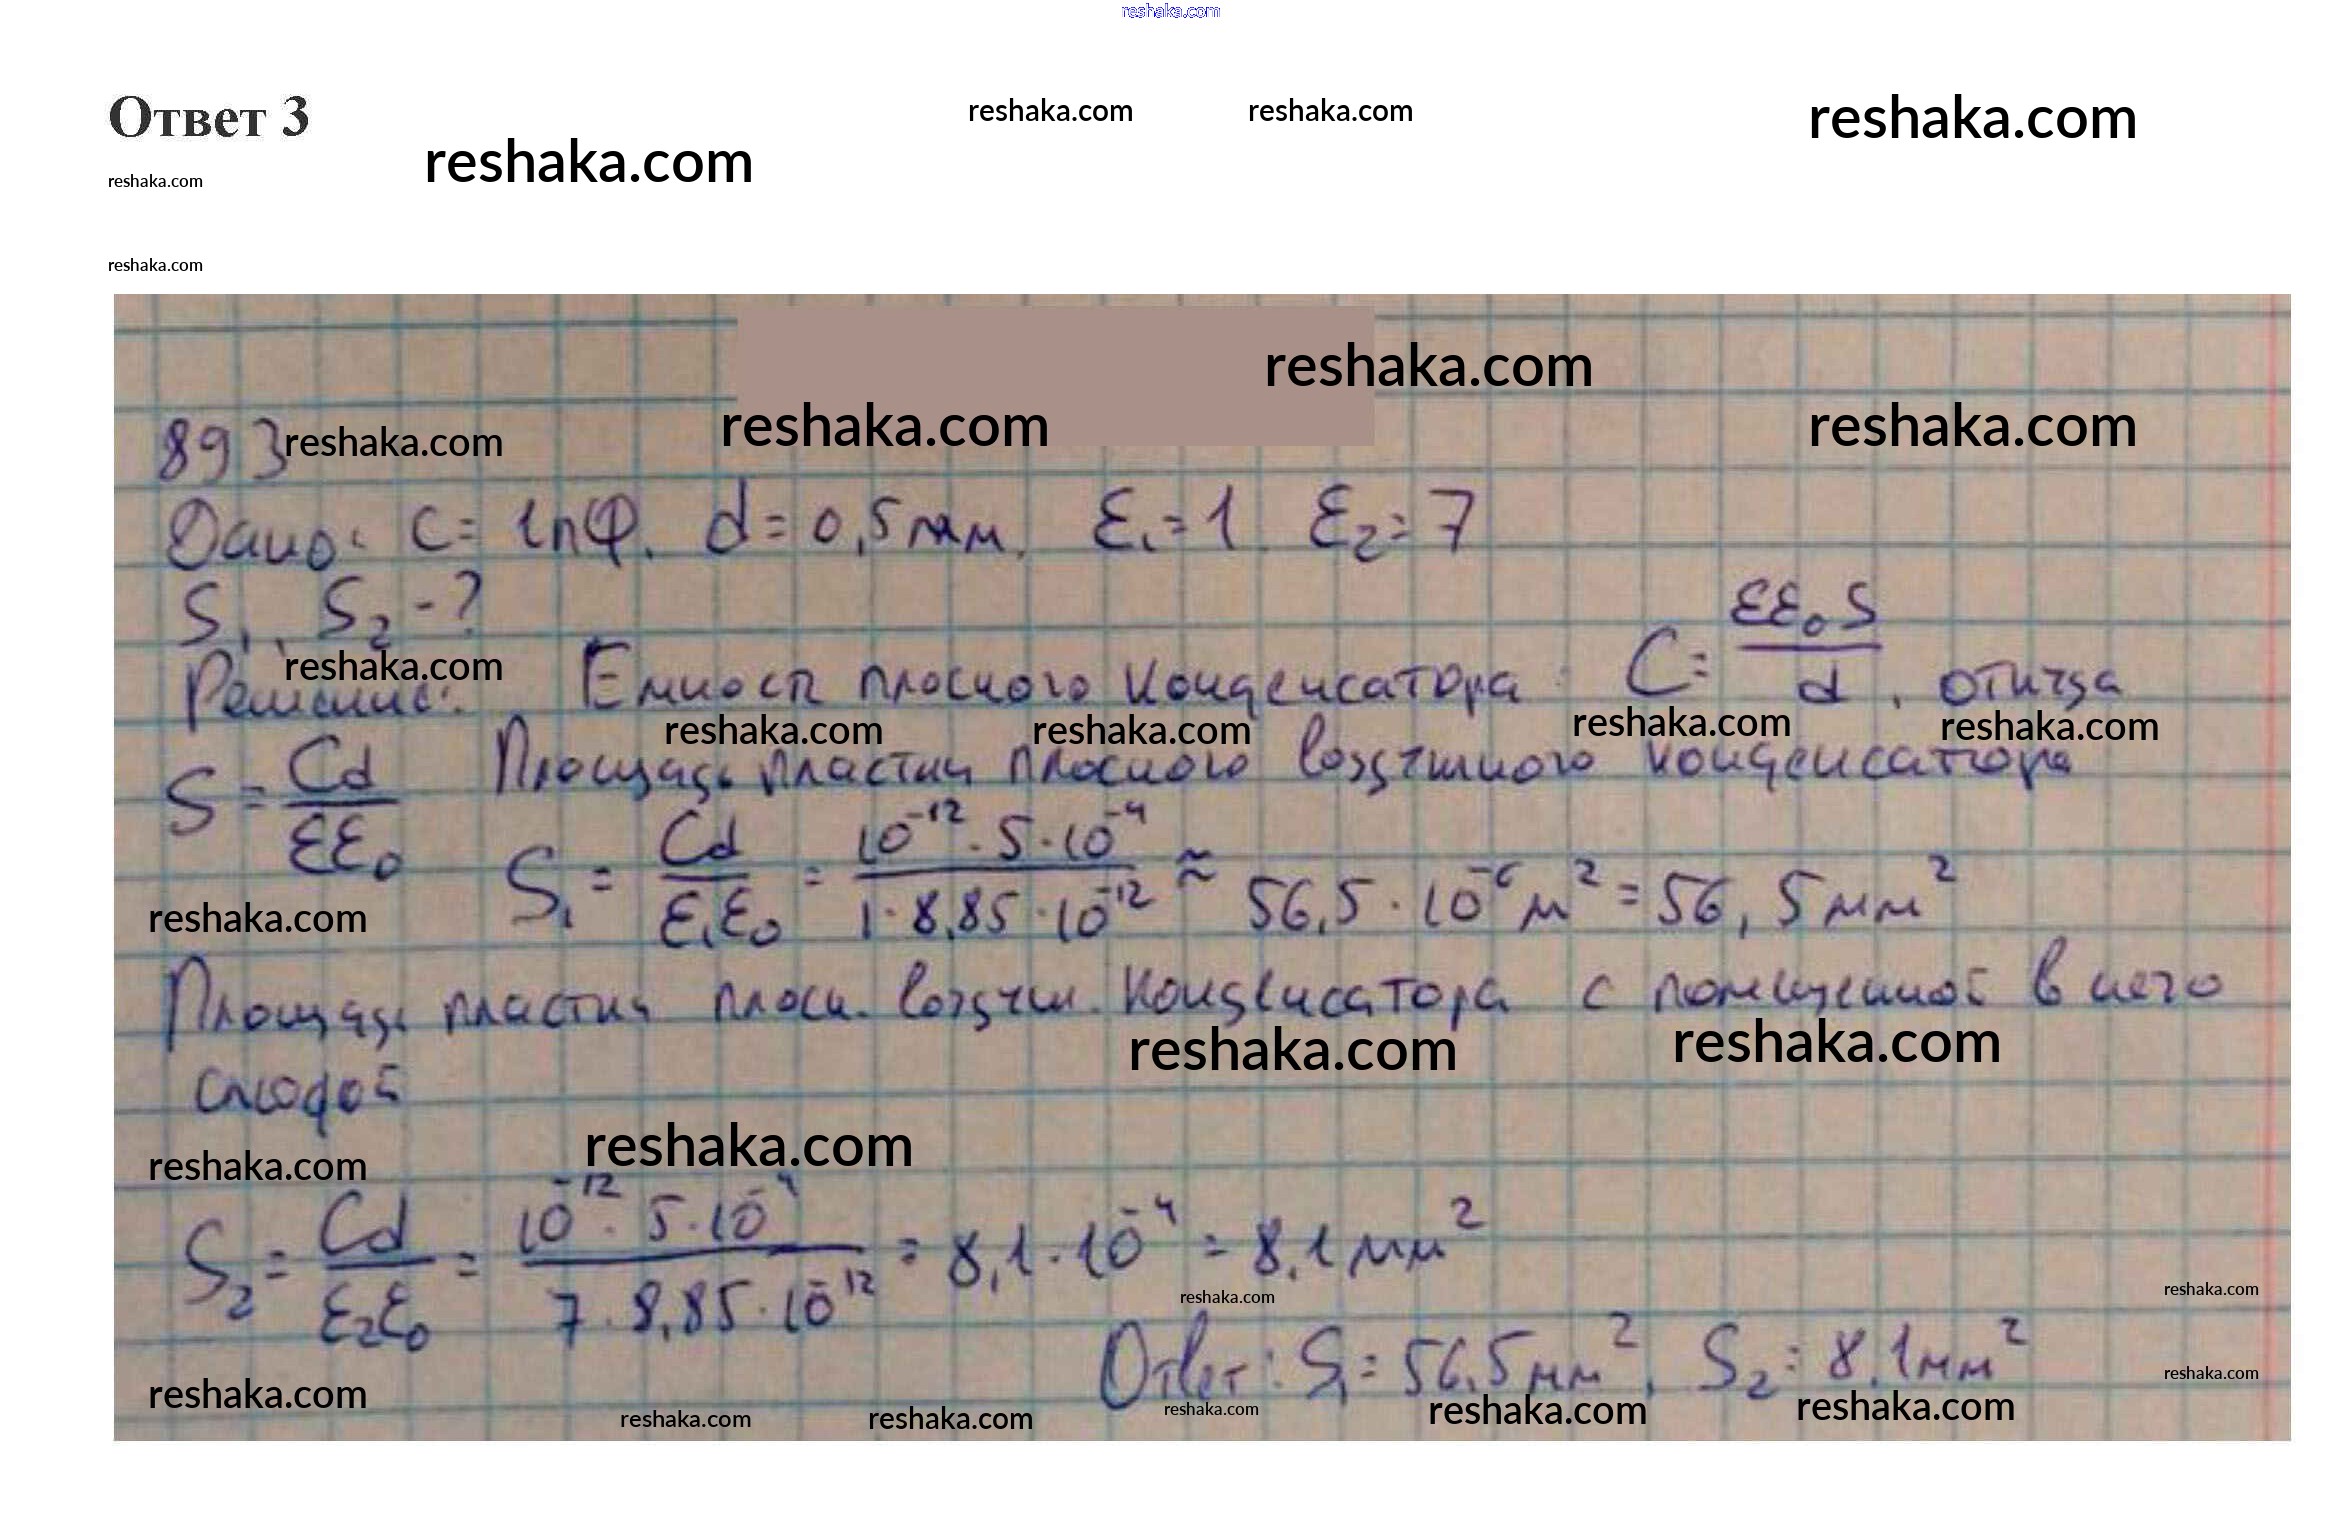 reshaka.com
Ответ 3
reshaka.com reshaka.com reshaka.com
reshaka.com
reshaka.com
reshaka.com
reshaka.com
893 reshaka.com reshaka.com reshaka.com
Дано: C = 1пФ. d = 0,5 мм. ε₁ = 1. ε₂ = 7
S₁, S₂ - ?
Решение: Емкость плоского конденсатора: C = εε₀S / d, откуда
reshaka.com
reshaka.com reshaka.com reshaka.com reshaka.com
S = Cd / εε₀ Площадь пластин плоского воздушного конденсатора
S₁ = Cd / ε₁ε₀ = 10⁻¹² · 5 · 10⁻⁴ / 1 · 8,85 · 10⁻¹² ≈ 56,5 · 10⁻⁶ м² = 56,5 мм²
reshaka.com
Площадь пластин плоск. воздуш. конденсатора с помещенной в него
reshaka.com reshaka.com
слюдой
reshaka.com reshaka.com
S₂ = Cd / ε₂ε₀ = 10⁻¹² · 5 · 10⁻⁴ / 7 · 8,85 · 10⁻¹² = 8,1 · 10⁻⁴ = 8,1 мм²
reshaka.com reshaka.com
Ответ: S₁ = 56,5 мм², S₂ = 8,1 мм²
reshaka.com reshaka.com
reshaka.com reshaka.com reshaka.com reshaka.com reshaka.com